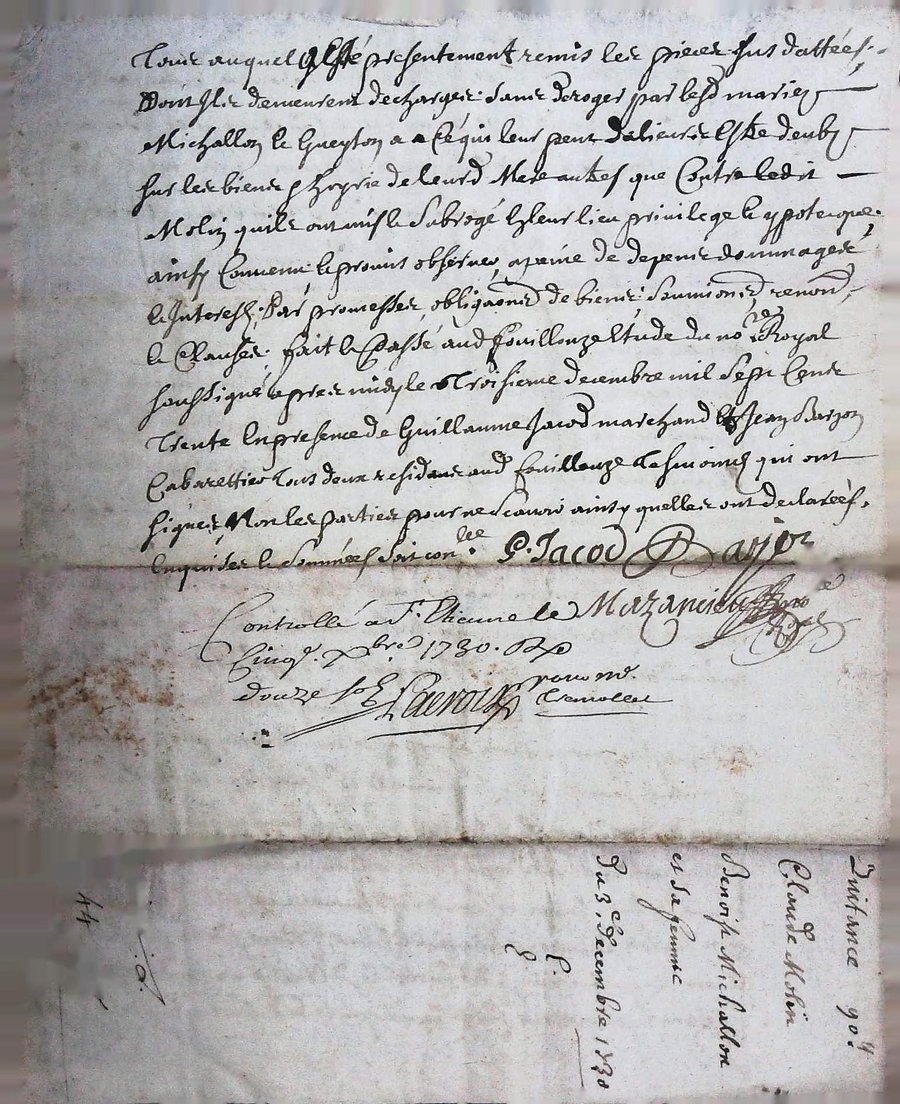 Tour auquel a esté presentement remis les pieces sus dattées,
Dont ils demeurent decharges sans deroger par lesd mariez
Michallon et Gueyton a a Ce qui leur peut dalieurs Estre deub
sur les biens de leurd Mere autres que Contre ledit
Molin quils ont mis et Subrogé En leur lieu privilege et ypoteque
ainsy Convenu et promis observer, a peine de depens dommages
et Interest, Par promesses, obligaons de biens Soumions, renond,
et Clauses. fait et Passé aud fouillouze Etude du no.re Royal
soussigné apres midy le Troisieme decembre mil Sept Cents
Trente En presence de Guillaume Jacod marchand et Jean
Cabarettier Tous deux residans aud fouillouze Tesmoins qui ont
signés Non les parties pour ne Scavoir ainsy quelles ont declarées,
Enquises et Sommées Soit con.lée G. Jacod
Controllé a St. Etienne le
Cinq. Xbre 1730. Rx
douze sols Lacroix
Quitance pour
Claude Molin
Benoist Michallon
et sa femme
Du 3.e Decembre 1730
44